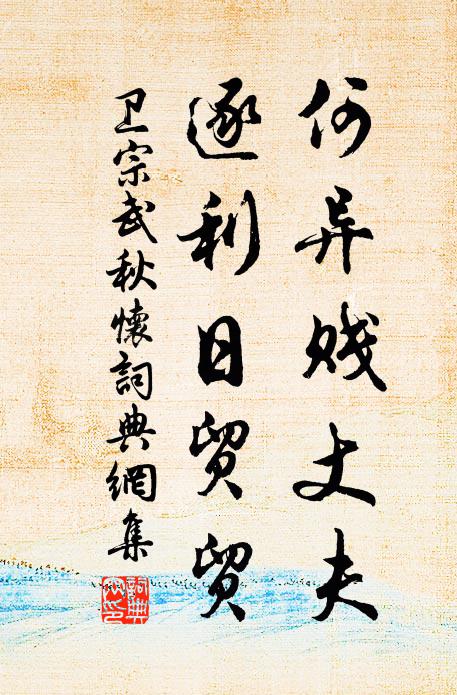 何异贱丈夫
逐利日贸贸
卫宗武秋懷詞典網集